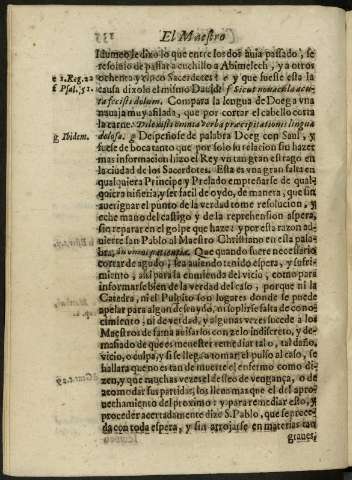 El Maestro
Idumeo le dixo lo que entre los dos auia passado, se
resoluio de passar a cuchillo a Abimelech, y a otros
e 1. Reg. 22
ochenta y cinco Sacerdotes: e y que fuesse esta la
f Psal. 51.
causa dixolo el mismo Dauid: f Sicut nouacula acu
ta fecisti dolum. Compara la lengua de Doeg a vna
nauaja muy afilada, que por cortar el cabello corta
la carne: Dilexisti omnia verba præcipitationis lingua
g Ibidem.
dolosa. g Despeñose de palabra Doeg con Saul, y
fuele de boca tanto que por solo su relacion sin hazer
mas informacion hizo el Rey vn tan gran estrago en
la ciudad de los Sacerdotes. Esta es vna gran falta en
qualquiera Principe y Prelado empreñarse de qual
quiera niñeria, y ser facil de oydo, de manera, que sin
aueriguar el punto de la verdad tome resolucion, y
eche mano del castigo y de la reprehension aspera,
sin reparar en el golpe que haze: y por esta razon ad
uierte san Pablo al Maestro Christiano en esta pala-
bra, in omni patientia. Que quando fuere necessario
cortar de agudo, sea auiendo tenido espera, y sufri-
miento, assi para la enmienda del vicio, como para
informarse bien de la verdad del caso; porque ni la
Catedra, ni el Pulpito son lugares donde se puede
apelar para algun descuydo, ni suplirse falta de cono-
cimiento, ni de verdad, y algunas vezes sucede a los
Maestros de fama auisarlos con zelo indiscreto, y de-
masiado de que es menester remediar tal o, tal daño,
vicio, o culpa, y si se llega a tomar el pulso al caso, se
hallara que no es tan de muerte el enfermo como di-
zen, y que muchas vezes el desseo de vengança, o de
acomodar sus partidas, los lleuò mas que el del apro-
uechamiento del proximo: y para remediar esto, y
proceder acertadamente dize S. Pablo, que se proce-
da con toda espera, y sin arrojarse en materias tan
graues,